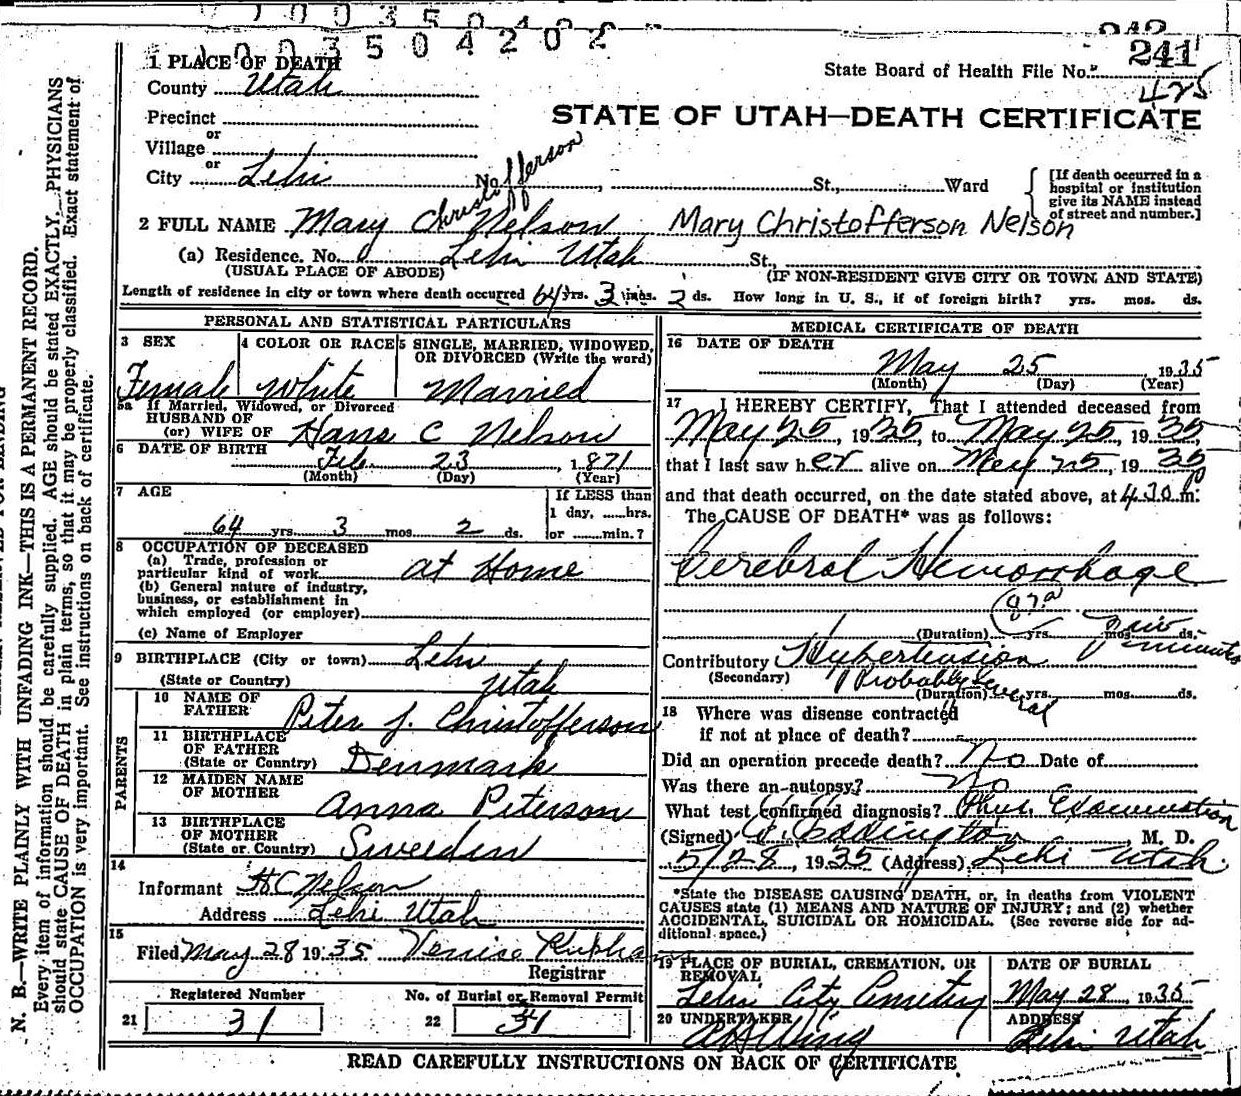 1003504202
242
241
1 PLACE OF DEATH
State Board of Health File No. 425
County Utah
STATE OF UTAH—DEATH CERTIFICATE
Precinct
or
Village
or
City Lehi No. St., Ward
[If death occurred in a hospital or institution give its NAME instead of street and number.]
Christofferson
2 FULL NAME Mary C Nelson Mary Christofferson Nelson
(a) Residence. No. Lehi Utah St.,
(USUAL PLACE OF ABODE) (IF NON-RESIDENT GIVE CITY OR TOWN AND STATE)
Length of residence in city or town where death occurred 64 yrs. 3 mos. 2 ds. How long in U. S., if of foreign birth? yrs. mos. ds.
PERSONAL AND STATISTICAL PARTICULARS
3 SEX 4 COLOR OR RACE 5 SINGLE, MARRIED, WIDOWED, OR DIVORCED (Write the word)
Female White Married
5a If Married, Widowed, or Divorced
HUSBAND OF
(or) WIFE OF Hans C Nelson
6 DATE OF BIRTH
Feb 23, 1871
(Month) (Day) (Year)
7 AGE
If LESS than
1 day, ......hrs.
64 yrs. 3 mos. 2 ds. or ......min.?
8 OCCUPATION OF DECEASED
(a) Trade, profession or
particular kind of work at Home
(b) General nature of industry,
business, or establishment in
which employed (or employer)
(c) Name of Employer
9 BIRTHPLACE (City or town) Lehi
(State or Country) Utah
PARENTS
10 NAME OF
FATHER Peter J. Christofferson
11 BIRTHPLACE
OF FATHER
(State or Country) Denmark
12 MAIDEN NAME
OF MOTHER Anna Peterson
13 BIRTHPLACE
OF MOTHER
(State or Country) Sweeden
14
Informant H C Nelson
Address Lehi Utah
15
Filed May 28 1935
Registrar
Registered Number No. of Burial or Removal Permit
21 31 22 31
MEDICAL CERTIFICATE OF DEATH
16 DATE OF DEATH
May 25 1935
(Month) (Day) (Year)
17 I HEREBY CERTIFY, That I attended deceased from
May 25, 1935, to May 25, 1935,
that I last saw her alive on May 25, 1935
and that death occurred, on the date stated above, at 4.30 p m.
The CAUSE OF DEATH* was as follows:
Cerebral Hemorrhage
(Duration) yrs. mos. ds.
few minutes
Contributory Hypertension
(Secondary) Probably Several
(Duration) yrs. mos. ds.
18 Where was disease contracted
if not at place of death?
Did an operation precede death? No Date of
Was there an autopsy? No
What test confirmed diagnosis? Phys. Examination
(Signed) Eddington M. D.
5/28, 1935 (Address) Lehi Utah.
*State the DISEASE CAUSING DEATH, or, in deaths from VIOLENT
CAUSES state (1) MEANS AND NATURE OF INJURY; and (2) whether
ACCIDENTAL, SUICIDAL OR HOMICIDAL. (See reverse side for ad-
ditional space.)
19 PLACE OF BURIAL, CREMATION, OR REMOVAL DATE OF BURIAL
Lehi City Cemetery May 28, 1935
20 UNDERTAKER ADDRESS
A H Wing Lehi Utah
READ CAREFULLY INSTRUCTIONS ON BACK OF CERTIFICATE
N. B.—WRITE PLAINLY WITH UNFADING INK—THIS IS A PERMANENT RECORD.
Every item of information should be carefully supplied. AGE should be stated EXACTLY. PHYSICIANS
should state CAUSE OF DEATH in plain terms, so that it may be properly classified. Exact statement of
OCCUPATION is very important. See instructions on back of certificate.